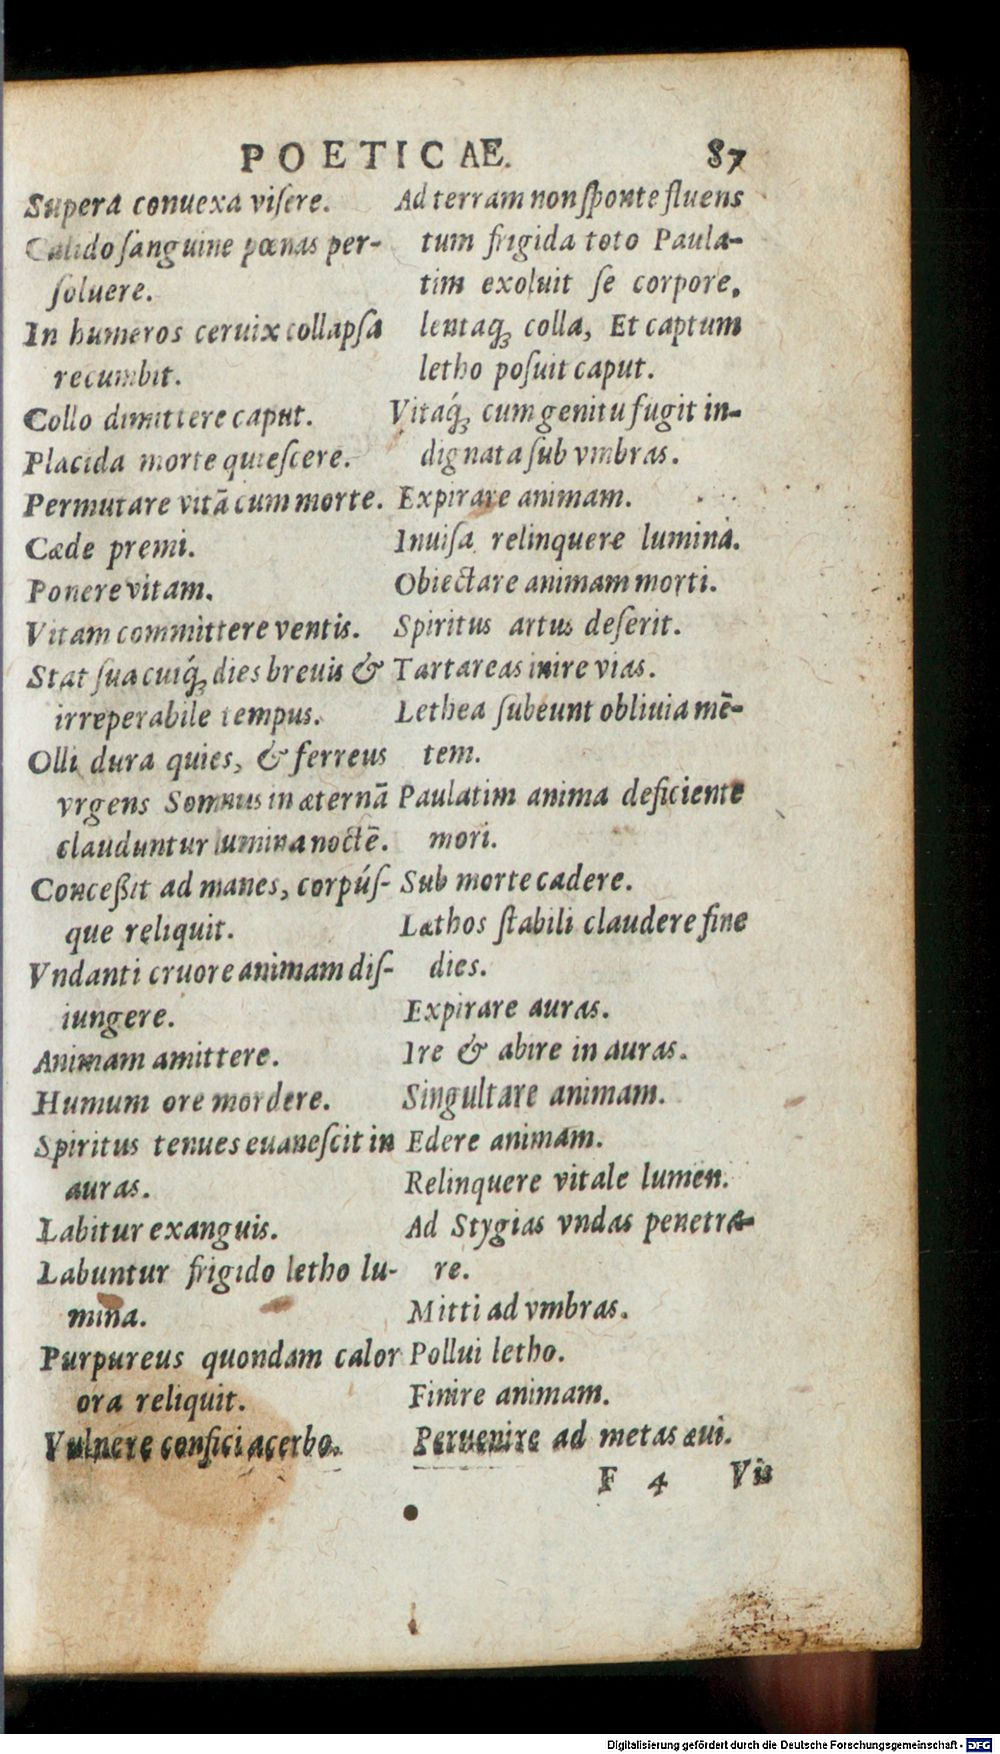 POETICAE. 87
Supera conuexa viſere.
Calido ſanguine pœnas per-
ſoluere.
In humeros ceruix collapſa
recumbit.
Collo dimittere caput.
Placida morte quieſcere.
Permutare vitã cum morte.
Cæde premi.
Ponere vitam.
Vitam committere ventis.
Stat ſua cuiq́ꝫ dies breuis &
irreperabile tempus.
Olli dura quies, & ferreus
vrgens Somnus in æternã
clauduntur lumina noctẽ.
Conceßit ad manes, corpúſ-
que reliquit.
Vndanti cruore animam diſ-
iungere.
Animam amittere.
Humum ore mordere.
Spiritus tenues euaneſcit in
auras.
Labitur exanguis.
Labuntur frigido letho lu-
mina.
Purpureus quondam calor
ora reliquit.
Vulnere confici acerbo.
Ad terram non ſponte fluens
tum frigida toto Paula-
tim exoluit ſe corpore,
lentaqꝫ colla, Et captum
letho poſuit caput.
Vitaq́ꝫ cum genitu fugit in-
dignata ſub vmbras.
Expirare animam.
Inuiſa relinquere lumina.
Obiectare animam morti.
Spiritus artus deſerit.
Tartareas inire vias.
Lethea ſubeunt obliuia mẽ-
tem.
Paulatim anima deficiente
mori.
Sub morte cadere.
Læthos ſtabili claudere fine
dies.
Expirare auras.
Ire & abire in auras.
Singultare animam.
Edere animam.
Relinquere vitale lumen.
Ad Stygias vndas penetra-
re.
Mitti ad vmbras.
Pollui letho.
Finire animam.
Peruenire ad metas æui.
F 4 Vis
Digitalisierung gefördert durch die Deutsche Forschungsgemeinschaft - DFG